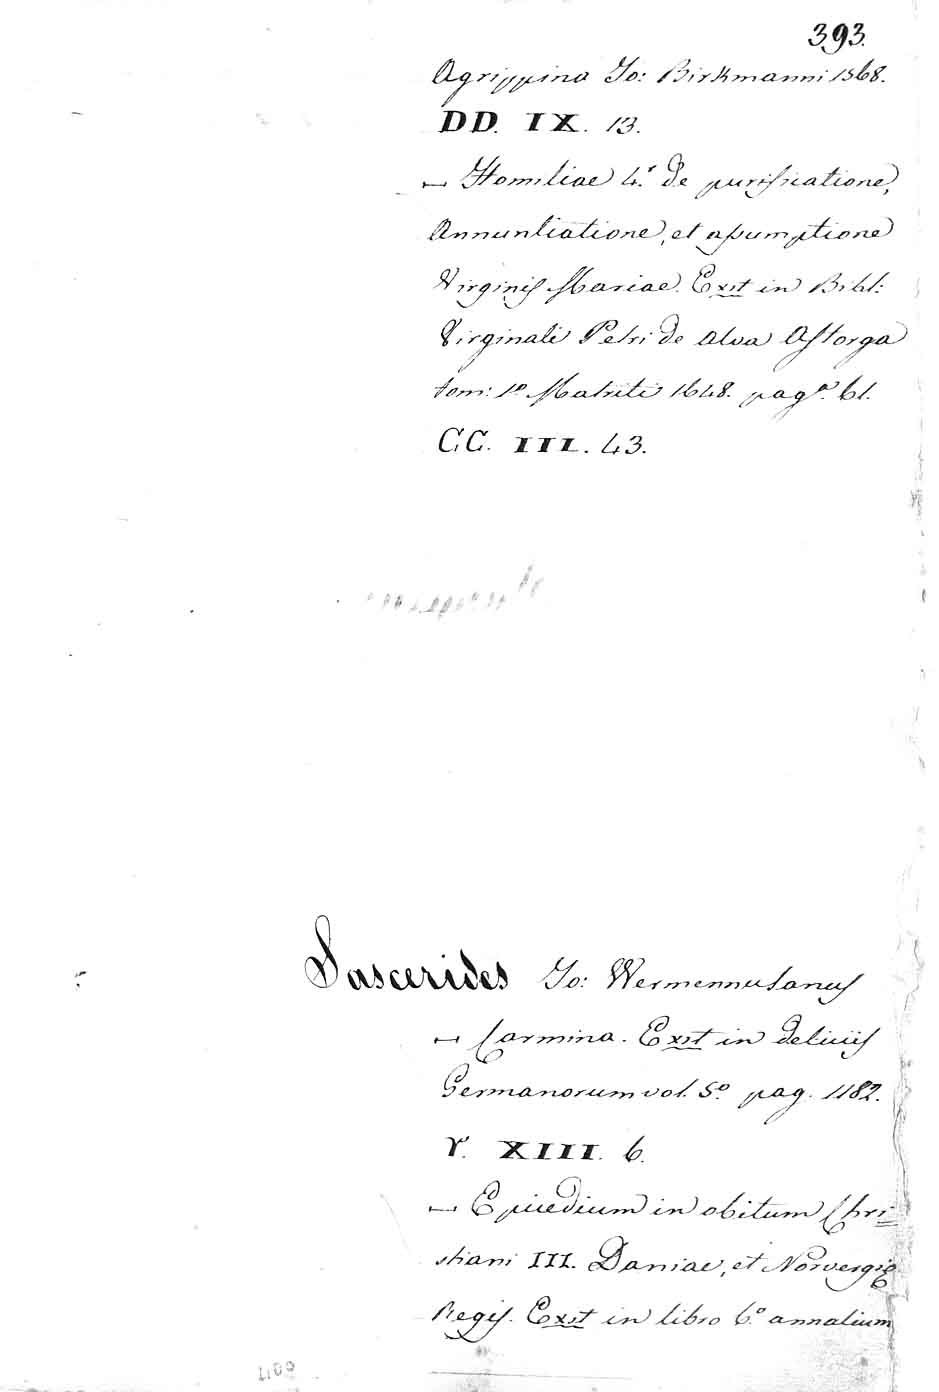 393.
Agrippina Jo: Birkmanni 1568.
DD. IX. 13.
— Homiliae 4.r de purificatione,
Annuntiatione, et assumptione
Virginis Mariae. Exit in Bibl:
Virginali Petri de Alva Astorga
tom: 1o Matriti 1648. paga. 61.
CC. III. 43.
Sascerides Jo:
— Carmina. Exit in delitiis
Germanorum vol. 5o pag. 1182.
Y. XIII. 6.
— Epicedium in obitum Chri
stiani III. Daniae, et Norvergię
Regis. Exit in libro 6.o annalium